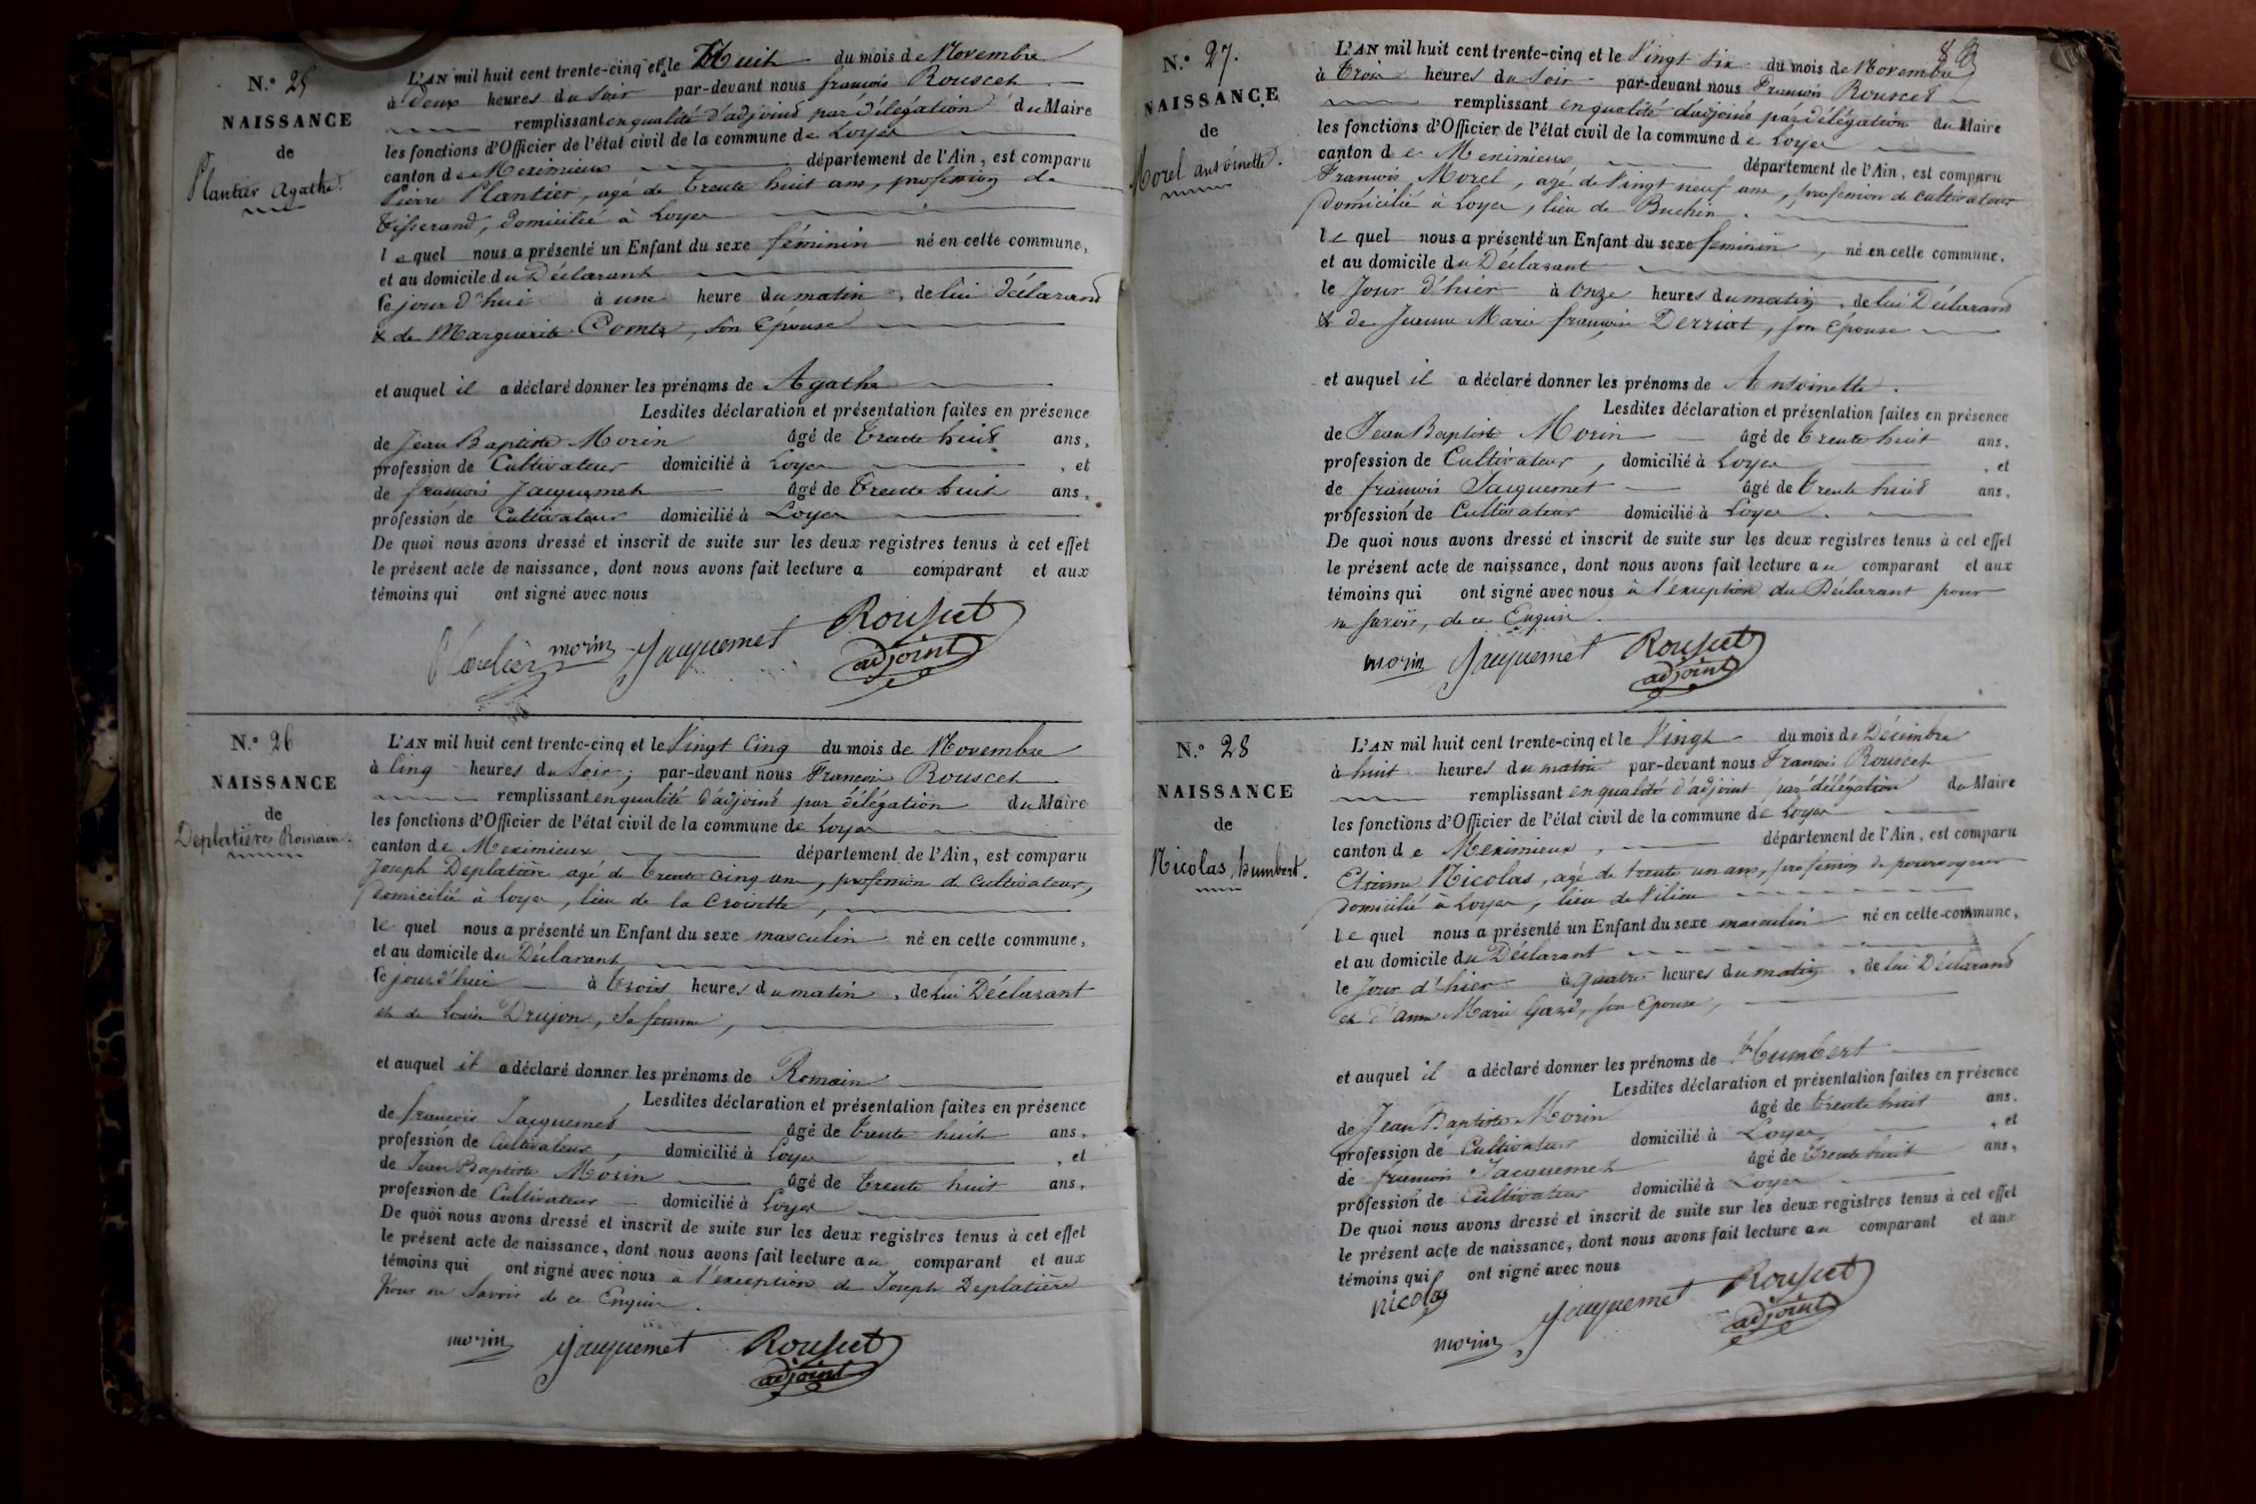 N.º 25
NAISSANCE
de
Plantier Agathe.
L'AN mil huit cent trente-cinq et le Huit du mois de Novembre
à deux heures du soir par-devant nous françois Rousset
remplissant en qualité d'adjoint par délégation du Maire
les fonctions d'Officier de l'état civil de la commune de Loyes
canton de Meximieux département de l'Ain, est comparu
Pierre Plantier, agé de trente huit ans, profession de
tisserand, domicilié à Loyes
lequel nous a présenté un Enfant du sexe féminin né en cette commune,
et au domicile du Déclarant
ce jour d'hui à une heure du matin, de lui déclarant
& de Marguerite Comte, son Épouse
et auquel il a déclaré donner les prénoms de Agathe
Lesdites déclaration et présentation faites en présence
de Jean Baptiste Morin âgé de trente huit ans,
profession de Cultivateur domicilié à Loyes, et
de françois Jacquemet âgé de trente huit ans,
profession de Cultivateur domicilié à Loyes
De quoi nous avons dressé et inscrit de suite sur les deux registres tenus à cet effet
le présent acte de naissance, dont nous avons fait lecture a comparant et aux
témoins qui ont signé avec nous
morin Jacquemet Rousset
adjoint
N.º 26
NAISSANCE
de
Deplatière Romain.
L'AN mil huit cent trente-cinq et le Vingt Cinq du mois de Novembre
à Cinq heures du Soir, par-devant nous François Rousset
remplissant en qualité d'adjoint par délégation du Maire
les fonctions d'Officier de l'état civil de la commune de Loyes
canton de Meximieux département de l'Ain, est comparu
Joseph Deplatière agé de trente cinq ans, profession de Cultivateur,
domicilié à Loyes, lieu de la Croisette,
lequel nous a présenté un Enfant du sexe masculin né en cette commune,
et au domicile du Déclarant
ce jourd'hui à trois heures du matin, de lui Déclarant
et de Louise Drujon, sa femme,
et auquel il a déclaré donner les prénoms de Romain
Lesdites déclaration et présentation faites en présence
de françois Jacquemet âgé de trente huit ans,
profession de Cultivateur, domicilié à Loyes, et
de Jean Baptiste Morin âgé de trente huit ans,
profession de Cultivateur domicilié à Loyes
De quoi nous avons dressé et inscrit de suite sur les deux registres tenus à cet effet
le présent acte de naissance, dont nous avons fait lecture au comparant et aux
témoins qui ont signé avec nous à l'exception de Joseph Deplatière
pour ne Savoir de ce Enquis.
morin Jacquemet Rousset
adjoint
N.º 27.
NAISSANCE
de
Morel antoinette.
L'AN mil huit cent trente-cinq et le Vingt Six du mois de Novembre
à trois heures du Soir par-devant nous François Rousset
remplissant en qualité d'adjoint par délégation du Maire
les fonctions d'Officier de l'état civil de la commune de Loyes
canton de Meximieux département de l'Ain, est comparu
François Morel, agé de Vingt neuf ans, profession de cultivateur
domicilié à Loyes, lieu de Buchin.
lequel nous a présenté un Enfant du sexe feminin, né en cette commune,
et au domicile du Déclarant
le Jour d'hier à Onze heures du matin, de lui Déclarant
& de Jeanne Marie françoise Derriat, son Épouse
et auquel il a déclaré donner les prénoms de Antoinette.
Lesdites déclaration et présentation faites en présence
de Jean Baptiste Morin âgé de trente huit ans,
profession de Cultivateur, domicilié à Loyes, et
de françois Jacquemet âgé de trente huit ans,
profession de Cultivateur domicilié à Loyes.
De quoi nous avons dressé et inscrit de suite sur les deux registres tenus à cet effet
le présent acte de naissance, dont nous avons fait lecture au comparant et aux
témoins qui ont signé avec nous à l'exception du Déclarant pour
ne savoir, de ce Enquis.
morin Jacquemet Rousset
adjoint
N.º 28
NAISSANCE
de
Nicolas humbert.
L'AN mil huit cent trente-cinq et le Vingt du mois de Décembre
à huit heures du matin par-devant nous François Rousset
remplissant en qualité d'adjoint par délégation du Maire
les fonctions d'Officier de l'état civil de la commune de Loyes
canton de Meximieux, département de l'Ain, est comparu
Etienne Nicolas, agé de trente un ans, profession de
domicilié à Loyes, lieu de Vilieu
lequel nous a présenté un Enfant du sexe masculin né en cette commune,
et au domicile du Déclarant
le Jour d'hier à quatre heures du matin, de lui Déclarant
et d'anne Marie Gard, son Epouse,
et auquel il a déclaré donner les prénoms de Humbert
Lesdites déclaration et présentation faites en présence
de Jean Baptiste Morin âgé de trente huit ans,
profession de Cultivateur domicilié à Loyes, et
de françois Jacquemet âgé de trente huit ans,
profession de Cultivateur domicilié à Loyes
De quoi nous avons dressé et inscrit de suite sur les deux registres tenus à cet effet
le présent acte de naissance, dont nous avons fait lecture au comparant et aux
témoins qui ont signé avec nous
nicolas
morin Jacquemet Rousset
adjoint